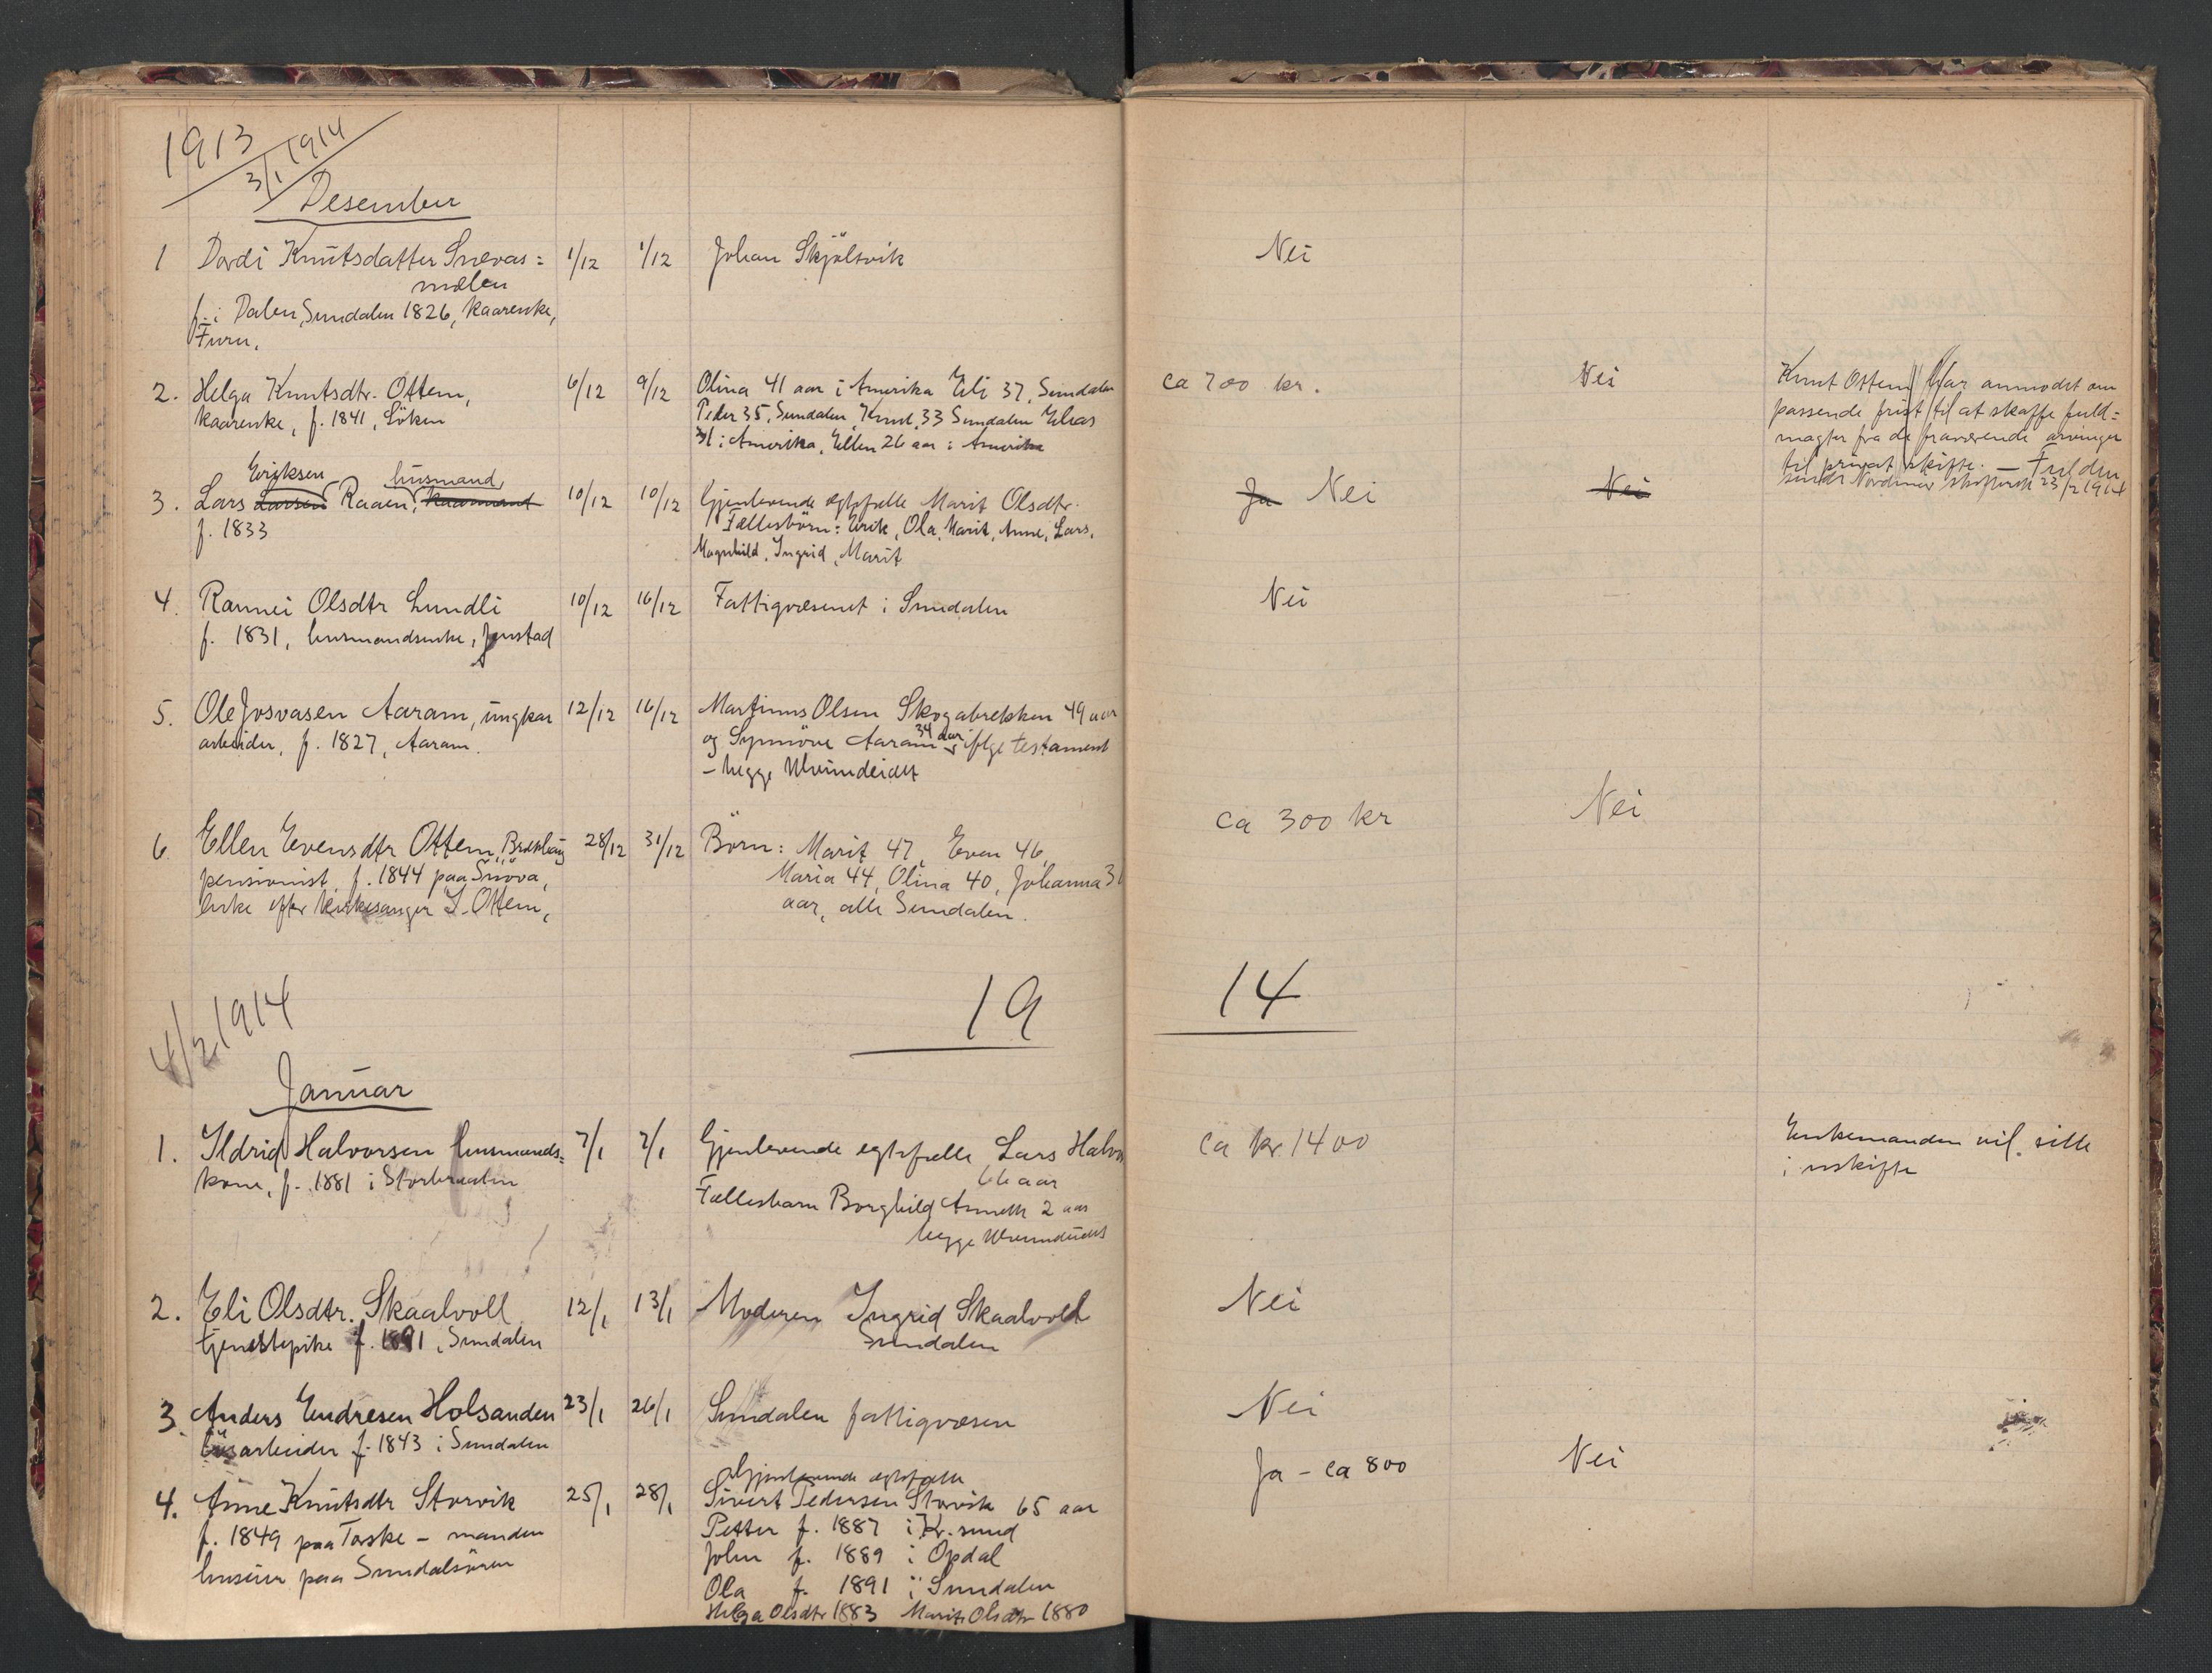 1913
3/1 1914
Desember
1 Dordi Knutsdatter Snøvas= 1/12 1/12 Johan Skjölsvik Nei
mælen
f. i Dalen, Sundalen 1826, kaarenke,
Furu.
2. Helga Knutsdtr. Ottem, 6/12 9/12 Olina 41 aar i Amerika Eli 37, Sundalen ca 700 kr. Nei Knut Ottem har anmodet om
kaarenke, f. 1841, Löken Peder 35, Sundalen, Knut 33 Sundalen Elias passende frist til at skaffe fuld=
31 i Amerika, Ellen 26 aar i Amerika magter fra de fraværende arvinger
til privat skifte. —
sendt Nordmør skifteret 23/2 1914
Eriksen husmand
3. Lars Larsen Raaen, kaarmand 10/12 10/12 Gjenlevende egtefælle Marit Olsdtr. Ja Nei Nei
f. 1833 Fællesbörn: Erik, Ola, Marit, Anne, Lars,
Magnhild, Ingrid, Marit
4. Rannei Olsdtr Lundli 10/12 16/12 Fattigvæsenet i Sundalen Nei
f. 1831, husmandsenke, Jenstad
5. Ole Josvasen Aaram, ungkar 12/12 16/12 Martinus Olsen Skogabrekken 49 aar
arbeider, f. 1827, Aaram. og Synnöve Aaram 34 aar iflge testament
– begge Ulvundeidet
6. Ellen Evensdtr Ottem, 28/12 31/12 Börn: Marit 47, Even 46, ca 300 kr Nei
pensionist, f. 1844 paa Snöva, Maria 44, Olina 40, Johanna
enke efter kirkesanger I. Ottem, aar, alle Sundalen.
19 14
4/2 1914
Januar
1. Ildrid Halvorsen husmands= 7/1 7/1 Gjenlevende egtefælle Lars Halvor ca kr. 1400 Enkemanden vil sitte
kone, f. 1881 i 66 aar i uskifte
Fællesbarn Borghild Annette 2 aar
begge Ulvundeidet
2. Eli Olsdtr. Skaalvoll 12/1 13/1 Moderen Ingrid Skaalvold Nei
tjenestepike f. 1891, Sundalen Sundalen
3 Anders Endresen Holsanden 23/1 26/1 Sundalen fattigvæsen Nei
løsarbeider f. 1843 i Sundalen
Gjenlevende egtefælle
4. Anne Knutsdtr Storvik 25/1 28/1 Sivert Pedersen Storvik 65 aar Ja – ca 800 Nei
f. 1849 paa Torske – manden Petter f. 1887 i Kr. sund
huseier paa Sundalsören John f. 1889 i Opdal
Ola f. 1891 i Sundalen
Helga Olsdtr 1883 Marit Olsdtr 1880